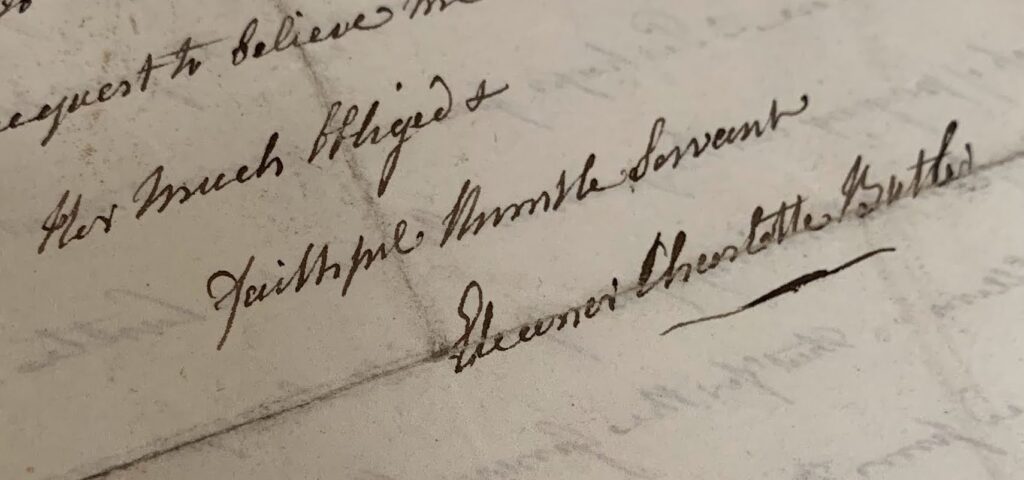 request to believe me
Her much Obliged &
Faithful Humble Servant
Eleanor Charlotte Butler